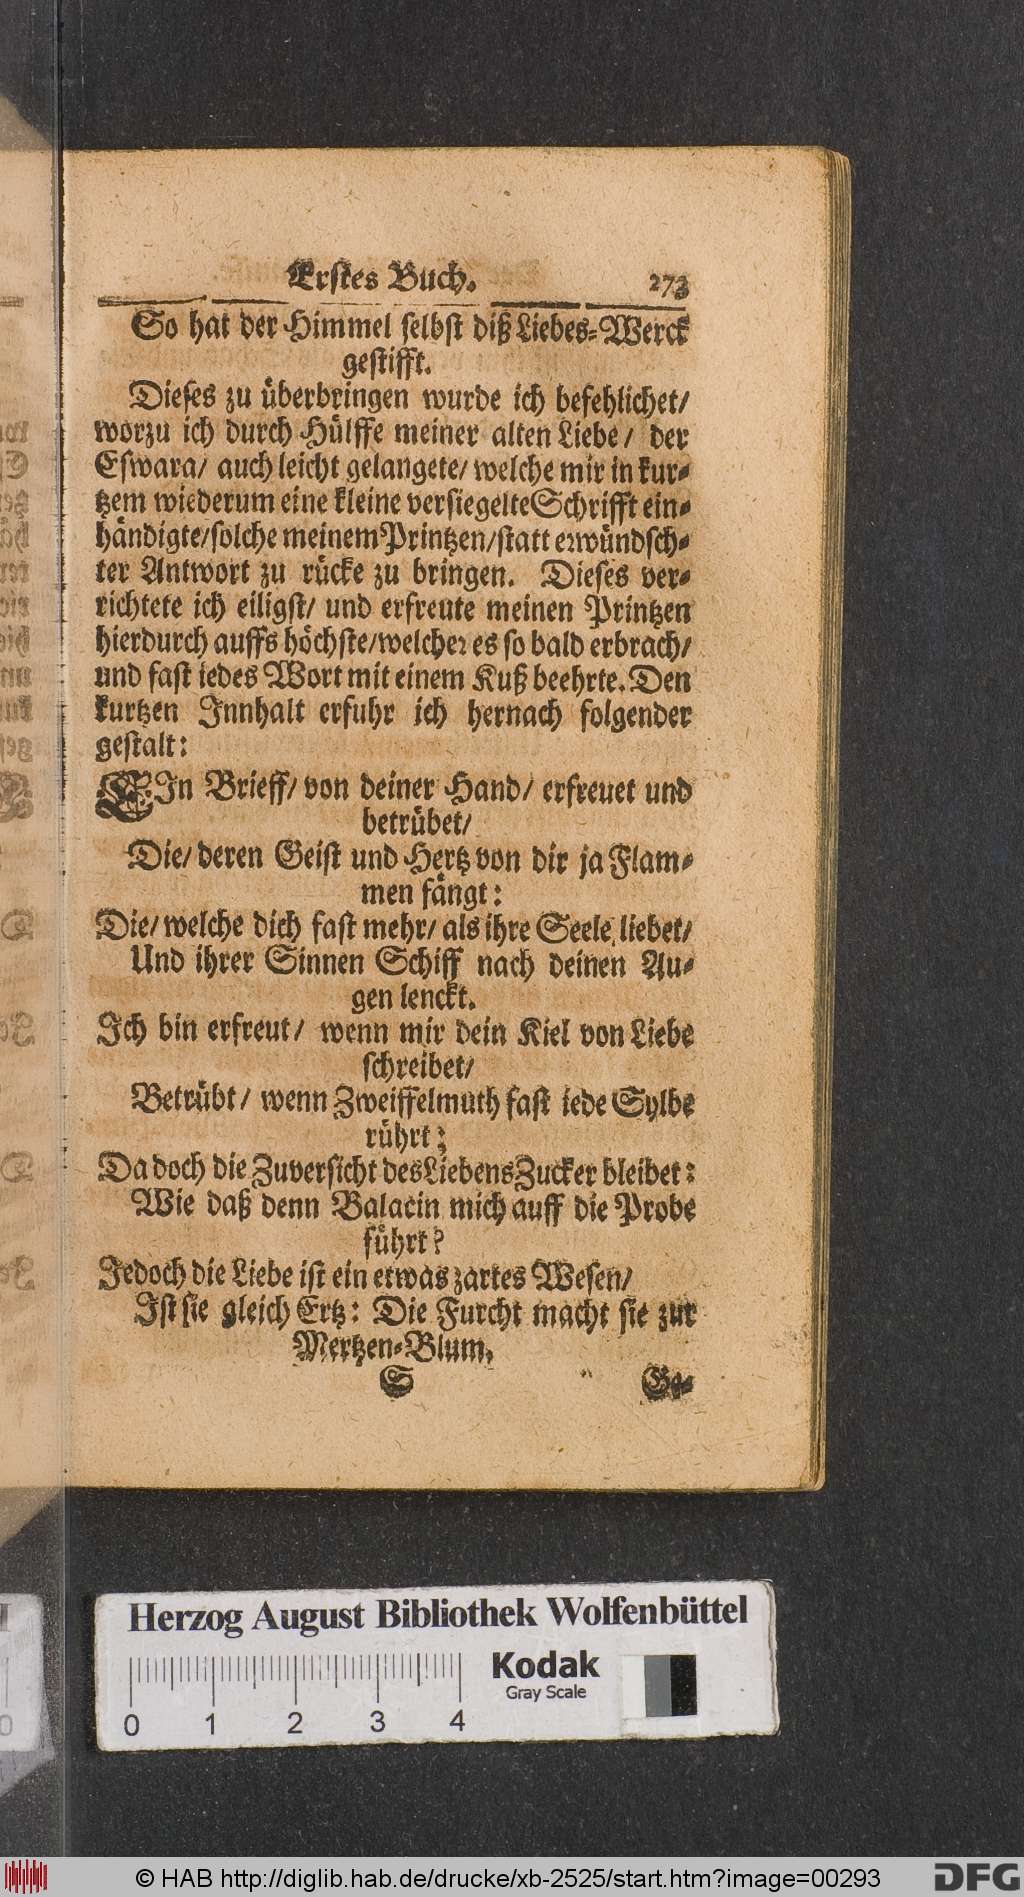 Erstes Buch. 273
So hat der Himmel selbst diß Liebes-Werck
gestifft.
Dieses zu überbringen wurde ich befehlichet/
worzu ich durch Hülffe meiner alten Liebe/ der
Eswara/ auch leicht gelangete/ welche mir in kur-
tzem wiederum eine kleine versiegelte Schrifft ein-
händigte/ solche meinem Printzen/ statt erwündsch-
ter Antwort zu rücke zu bringen. Dieses ver-
richtete ich eiligst/ und erfreute meinen Printzen
hierdurch auffs höchste/ welcher es so bald erbrach/
und fast iedes Wort mit einem Kuß beehrte. Den
kurtzen Innhalt erfuhr ich hernach folgender
gestalt:
EIn Brieff/ von deiner Hand/ erfreuet und
betrübet/
Die/ deren Geist und Hertz von dir ja Flam-
men fängt:
Die/ welche dich fast mehr/ als ihre Seele liebet/
Und ihrer Sinnen Schiff nach deinen Au-
gen lenckt.
Ich bin erfreut/ wenn mir dein Kiel von Liebe
schreibet/
Betrübt/ wenn Zweiffelmuth fast iede Sylbe
rührt;
Da doch die Zuversicht des Liebens Zucker bleibet:
Wie daß denn Balacin mich auff die Probe
führt?
Jedoch die Liebe ist ein etwas zartes Wesen/
Ist sie gleich Ertz: Die Furcht macht sie zur
Mertzen-Blum.
S Ge-
Herzog August Bibliothek Wolfenbüttel
Kodak
Gray Scale
0 1 2 3 4
© HAB http://diglib.hab.de/drucke/xb-2525/start.htm?image=00293
DFG